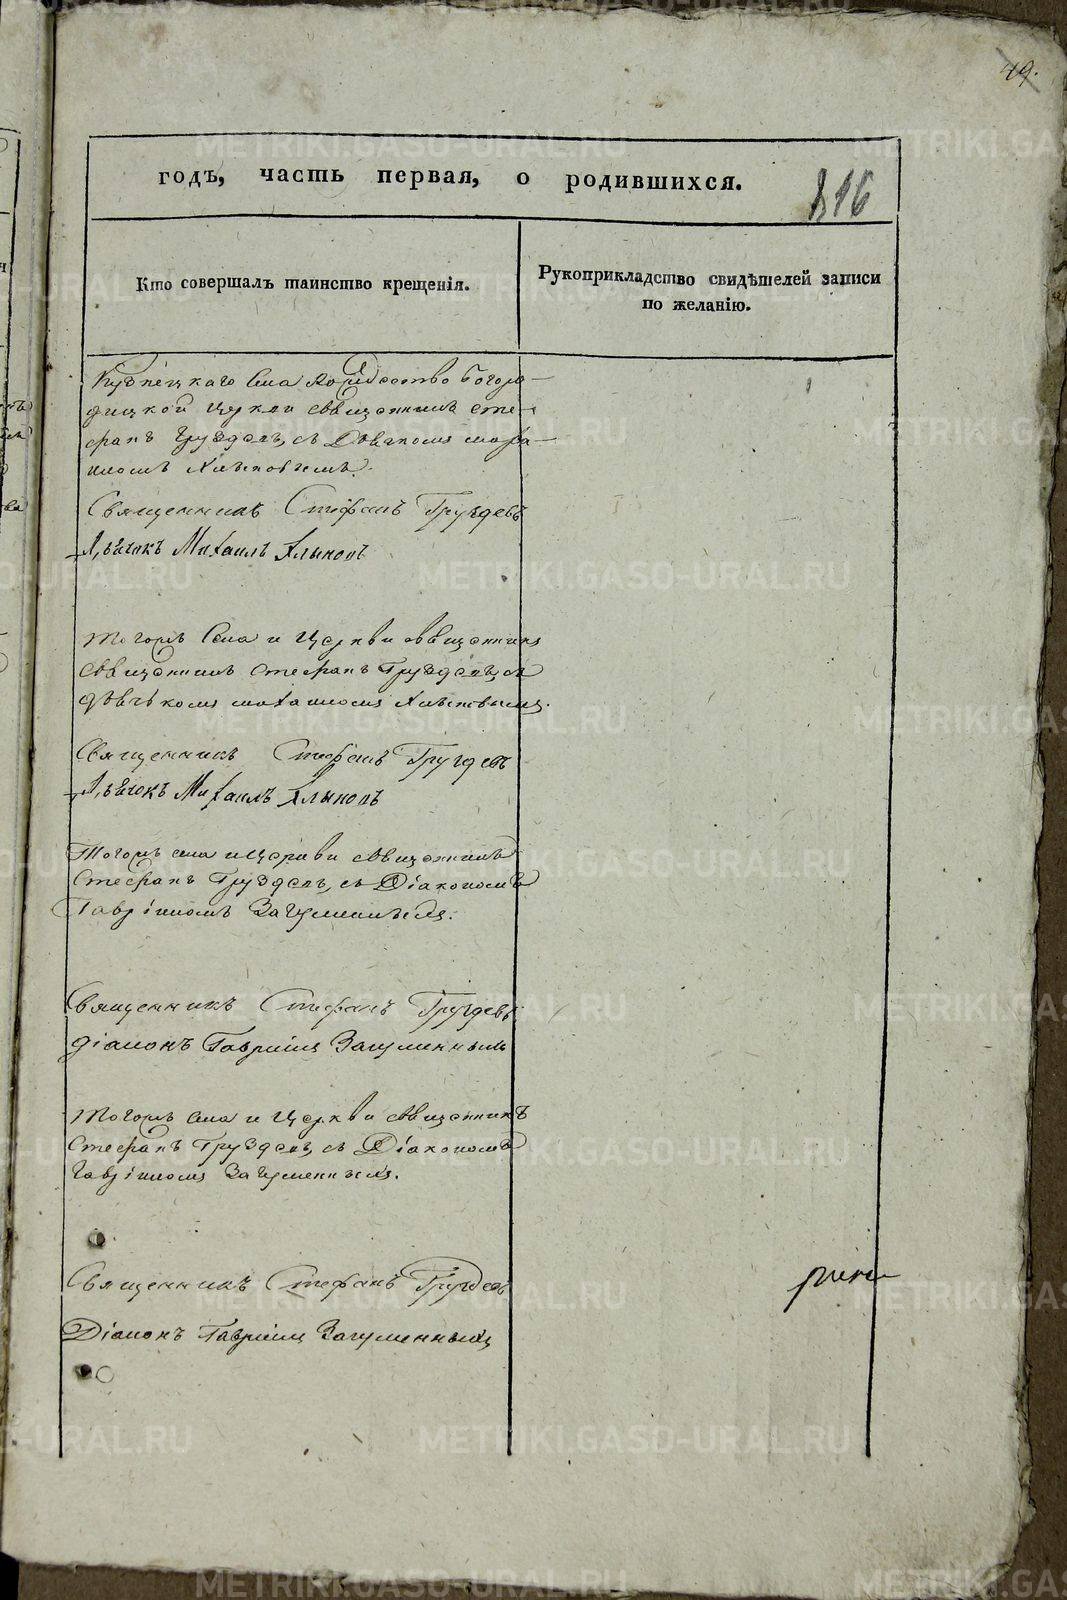 49.
годъ, часть первая, о родившихся.
816
Кто совершалъ таинство крещенія.
Рукоприкладство свидѣтелей записи
по желанію.
села Рождество Богоро-
дицкой Церкви священникъ Сте-
фанъ Груздевъ, съ Дьячкомъ Миха-
иломъ Хлыновымъ.
Священникъ Стефанъ Груздевъ
Дьячокъ Михаилъ Хлыновъ
Тогожъ села и Церкви священникъ
священникъ Стефанъ Груздевъ, съ
дьячькомъ Михаиломъ Хлыновымъ.
Священникъ Стефанъ Груздевъ
Дьячокъ Михаилъ Хлыновъ
Тогожъ села и Церкви священникъ
Стефанъ Груздевъ, съ Діакономъ
Гавріиломъ Загуменнымъ.
Священникъ Стефанъ Груздевъ
діаконъ Гавріилъ Загуменныхъ
Тогожъ села и Церкви священникъ
Стефанъ Груздевъ, съ Діакономъ
Гавріиломъ Загуменнымъ.
Священникъ Стефанъ Груздевъ
Діаконъ Гавріилъ Загуменныхъ
METRIKI.GASO-URAL.RU